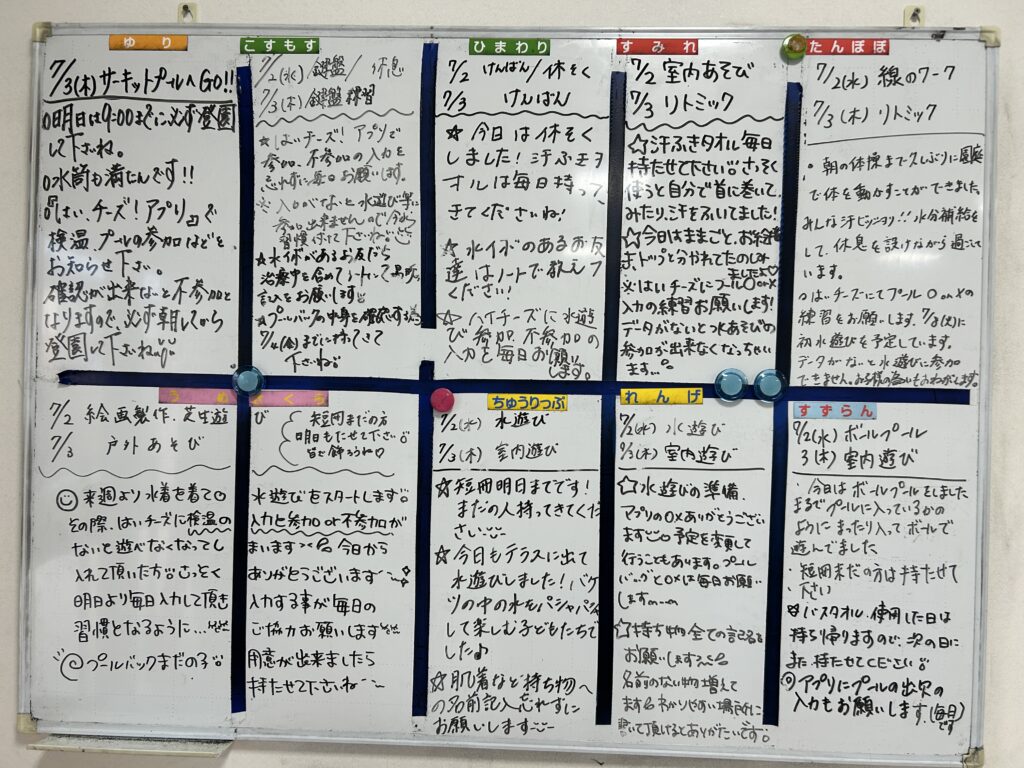 ゆり
7/3(木)サーキットプールへGO!!
○明日は9:00までに必ず登園
して下さいね。
○水筒も満たんです!!
『はい、チーズ!アプリ』で
検温、プールの参加などを
お知らせ下さい。
確認が出来ないと不参加と
なりますので、必ず朝してから
登園して下さいね
こすもす
7/2(水)鍵盤/休息
7/3(木)鍵盤練習
☆はいチーズ!アプリで
参加、不参加の入力を
忘れずに毎日お願いします。
※入力がないと水遊び等に
参加出来ませんので今から
習慣付けて下さいね。
★水イボがあるお友だち
治療中を含めてノートにて
記入をお願いします
★プールバッグの中身を確認
7/4(金)までに持ってきて
下さいね。
ひまわり
7/2 けんばん/休そく
7/3 けんばん
☆今日は休そく
しました!汗ふきタ
オルは毎日持って
きてくださいね!
☆水イボのあるお友
達はノートで教えて
ください!
☆ハイチーズに水遊
び参加、不参加の
入力を毎日お願い
します。
すみれ
7/2 室内あそび
7/3 リトミック
☆汗ふきタオル毎日
持たせて下さい。さっそく
使うと自分で首に巻いて
みたり、汗をふいてました!
☆今日はままごと、お絵描
ましたよ
※はいチーズにプール○or×
入力の練習お願いします!
データがないと水あそびの
参加が出来なくなっちゃい
ます…。
たんぽぽ
7/2(水) 線のワーク
7/3(木) リトミック
。朝の体操まで久しぶりに園庭
で体を動かすことができました。
みんな汗ビッショリ!!水分補給を
して、休息を設けながら過ごして
います。
。はいチーズにてプール○or×の
練習をお願いします。7/8(火)に
初水遊びを予定しています。
データがないと水遊びに参加
できません。
うめ さくら
7/2 絵画製作、芝生遊び
7/3 戸外あそび
短冊まだの方
明日もたせて下さい。
皆で飾ろうね♡
来週より水着を着て○水遊びをスタートします。
その際、はいチーズに検温の入力と参加or不参加が
ないと遊べなくなってしまいます 今日から
入れて頂いた方 さっそくありがとうございます
明日より毎日入力して頂き入力する事が毎日の
習慣となるように…ご協力お願いします
プールバックまだの方。用意が出来ましたら
持たせて下さいね
ちゅうりっぷ
7/2(水) 水遊び
7/3(木) 室内遊び
☆短冊明日までです!
まだの人持ってきてくだ
さい
☆今日もテラスに出て
水遊びしました!バケ
ツの中の水をパシャパシャ
して楽しむ子どもたちで
した♪
☆肌着など持ち物へ
の名前記入忘れずに
お願いします
れんげ
7/2(水) 水遊び
7/3(木) 室内遊び
☆水遊びの準備、
アプリの○×ありがとうござい
ます 予定を変更して
行うこともあります。プール
バッグと○×は毎日お願い
します
☆持ち物全ての記名を
お願いします
名前のない物増えて
ます わかりやすい場所に
書いて頂けるとありがたいです。
すずらん
7/2(水) ボールプール
3(木) 室内遊び
・今日はボールプールをしました
まるでプールに入っているかの
ようにまったり入ってボールで
遊んでました
・短冊未だの方は持たせて
下さい
☆バスタオル、使用した日は
持ち帰りますので、次の日に
また持たせてください。
◎アプリにプールの出欠の
入力もお願いします。(毎日)
です